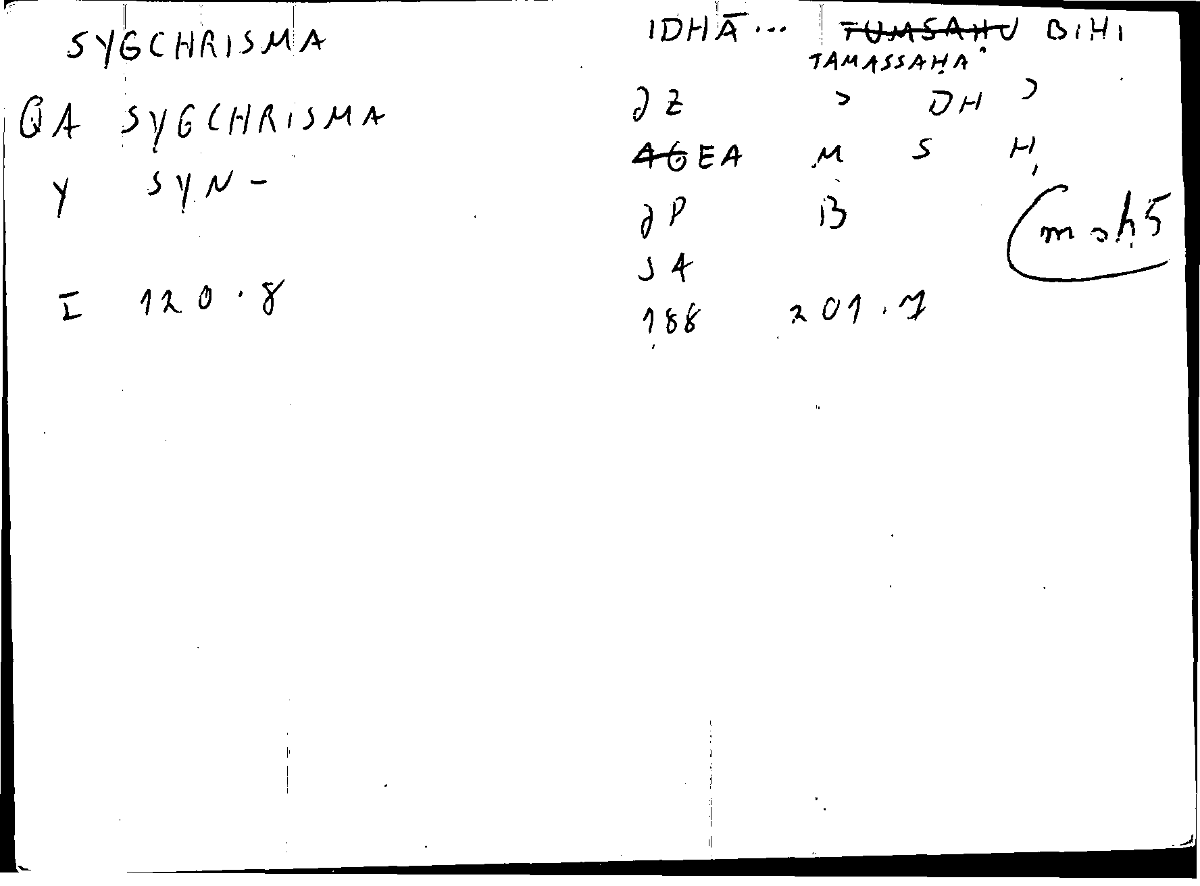 SYGCHRISMA
QA SYGCHRISMA
Y SYN-
I 120.8
IDHĀ... TUMSAHU BIHI
TAMASSAḤA
Z ʾ DH ʾ
EA M S Ḥ
P B
msḥ5
J4
188 201.7